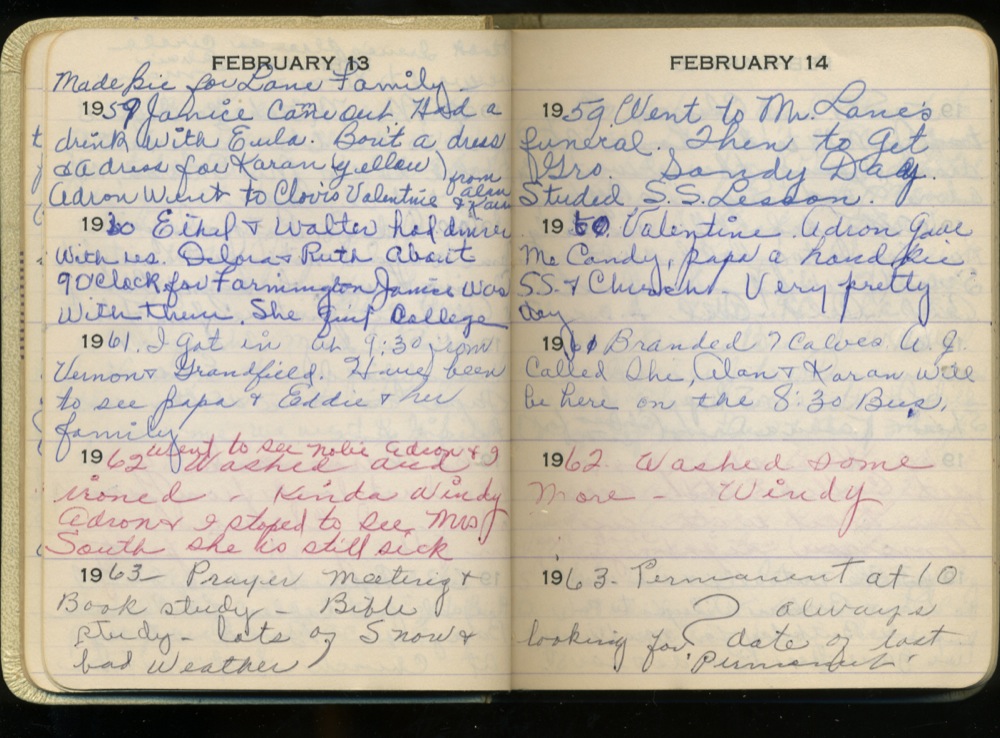 FEBRUARY 13
Made pie for Lane Family.
1959 Janice Came out. Had a
drink with Eula. Bou't a dress
& a dress for Karan (yellow)
Adron Went to Clovis Valentine from Alan & Karan
1960 Ethel & Walter had dinner
With us. Delora & Ruth About
9 O'Clock for Farmington Janice Was
With them. She College
1961. I got in at 9:30 from
Vernon & Grandfield. Have been
to see papa & Eddie & her
family.
Went to see Nobie Adron & I
1962 Washed and
ironed - Kinda Windy
Adron & I stoped to see Mrs
South she is still sick
1963 - Prayer Meeting &
Book study - Bible
study - lots of Snow &
bad Weather
FEBRUARY 14
1959 Went to Mr. Lane's
funeral. Then to Get
Gro. Sandy Day.
Studed S.S. Lesson.
1960. Valentine. Adron Gave
Me Candy, papa a handkie
SS. & Church - Very pretty
day
1961 Branded 7 Calves A.J.
Called She, Alan & Karan will
be here on the 8:30 Bus.
1962 Washed some
More - Windy
1963 - Permanent at 10
? always
looking for date of last
Permanent.